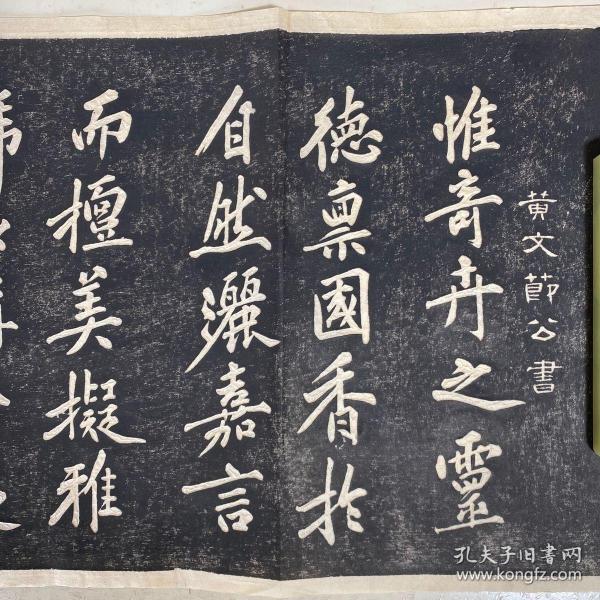 黄文節公書
惟奇卉之靈
德禀國香扵
自然灑嘉言
而擅美擬雅
孔夫子旧書网
www.kongfz.com